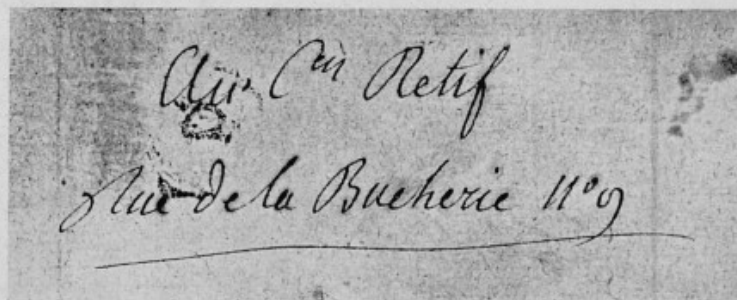 Au Cen Retif
Rue de la Bucherie n° 9